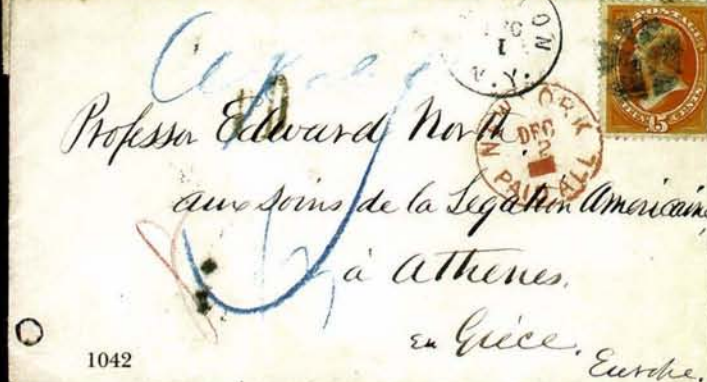 ON
DEC
1
N.Y.
NEW YORK
DEC
2
PAID ALL
15 CENTS
Professor Edward North,
aux soins de la Legation Américaine,
à Athenes.
en Grèce.
Europe.
1042